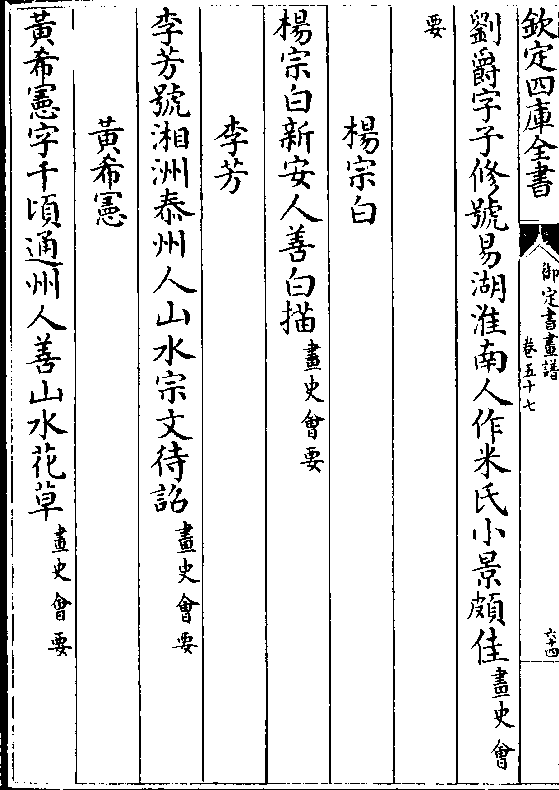 欽定四庫全書
御定書畫譜
卷五十七
六十四
劉爵字子修號易湖淮南人作米氏小景頗佳畫史會
要
楊宗白
楊宗白新安人善白描畫史會要
李芳
李芳號湘洲泰州人山水宗文待詔畫史會要
黃希憲
黃希憲字千頃通州人善山水花草畫史會要